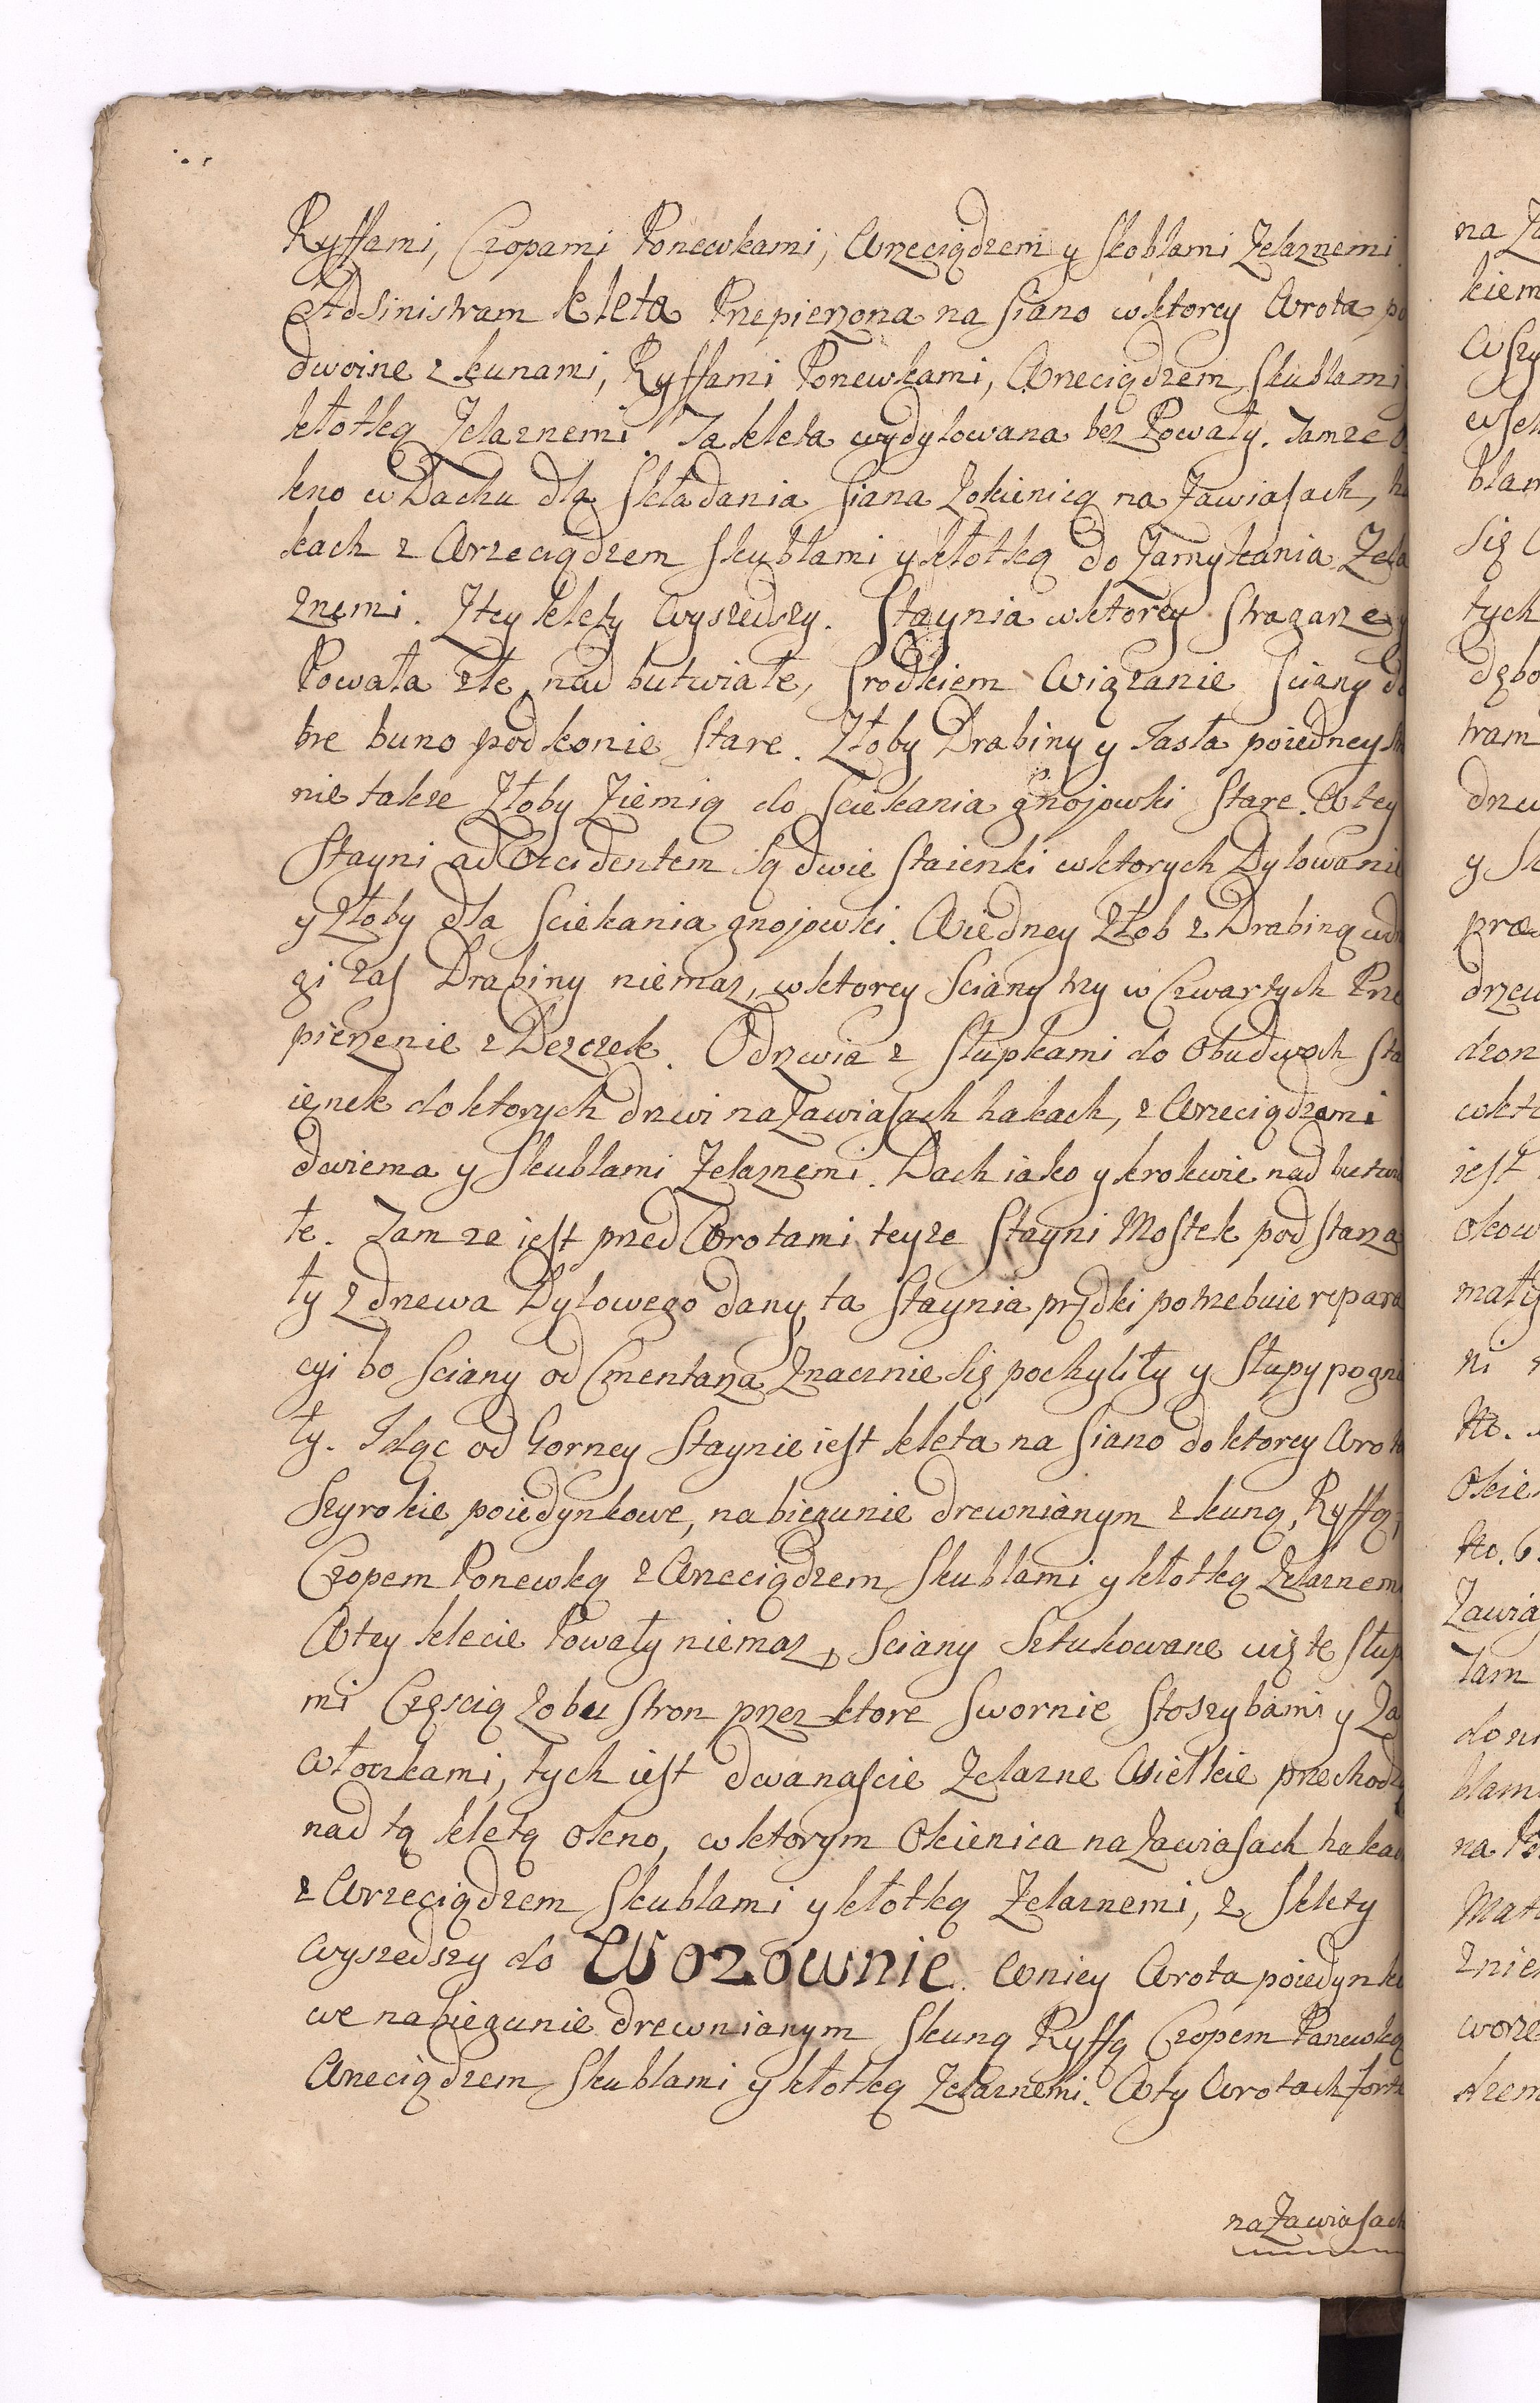 Ryffami, Czopami Ponewkami, Wrzeciądzem y skoblami Zelaznemi.
Adsinistram kleta Przepierzona na siano wktorey Wrota po
dwoine z kunami, Ryffami Ponewkami, Wrzeciądzem skublami
kłotką Zelaznemi. Ta kleta wydylowana bez Powały. Tamze O
kno w Dachu dla składania siana Zokienicą na Zawiasach, ha
kach z Wrzeciądzem skublami y kłotką do Zamykania Zela
znemi. Ztey klety Wyszedszy. Staynia wktorey Stragarze y
Powała złe, nad butwiałe, srodkiem Wiązanie sciany do
bre buno pod konie stare. Złoby Drabiny y Tasla poiedney stro
nie takze Złoby Ziemią do sciekania gnojowki stare. Wtey
Stayni ad Occidentem są dwie staienki wktorych Dylowanie
y Złoby dla sciekania gnojowki. Wiedney Złob z Drabiną wdru
gi zas Drabiny niemasz, wktorey sciany trzy w Czwartych Prze
pierzenie z Deszczek. Odrzwia z słupkami do Obudwoch sta
ienek doktorych drzwi na Zawiasach hakach, z Wrzeciądzemi
dwiema y skublami Zelaznemi. Dach iako y krokwie nad butwia
łe. Tamze iest przed Wrotami teyze Stayni Mostek pod starza
ły z drzewa Dylowego dany, ta Staynia prędki potrzebuie repara
cyi bo sciany od Cmentarza Znacznie się pochyliły y słupy pogni
ły. Idąc od Gorney Staynie iest kleta na siano doktorey Wrota
szyrokie poiedynkowe, na biegunie drewnianym z kuną, Ryffą,
Czopem Ponewką z Wrzeciądzem skublami y kłotką Zelaznemi
Wtey klecie Powały niemasz, sciany Sztukowane więte słup
mi Częscią Zobu stron przez ktore swornie stoszybami y Za
włoczkami, tych iest dwanascie Zelazne Wielkie przechodzą
nad tą kletą okno, wktorym Okienica na Zawiasach hakach
z Wrzeciądzem skublami y kłotką Zelaznemi, z klety
wyszedszy do Wozownie. Wniey Wrota poiedynko
we nabiegunie drewnianym skuną Ryffą Czopem Panewką
Wrzeciądzem skublami y kłotką Zelaznemi. Wty Wrotach fortk
na Zawiasach